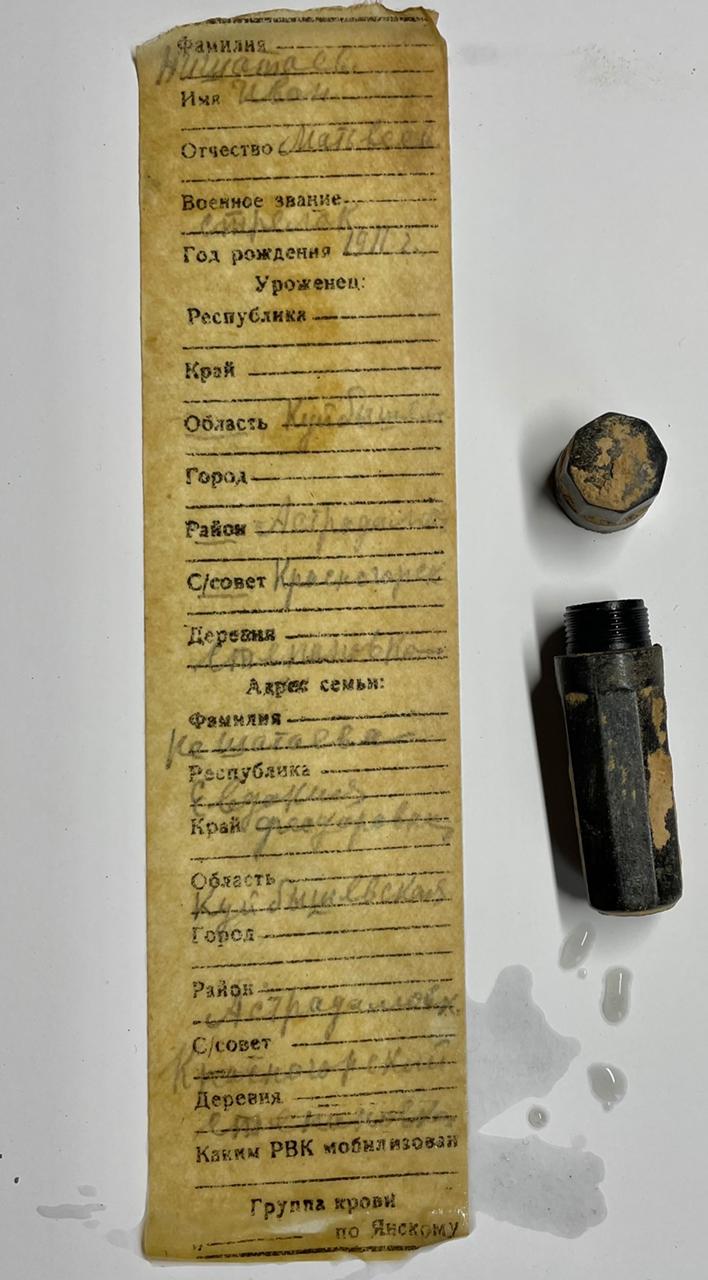 Фамилия
Имя Иван
Отчество Матвееви
Военное звание
стрелок
Год рождения 1911 г.
Уроженец:
Республика
Край
Область Куйбышевск
Город
Район Астрадамов
С/совет Красногорск
Деревня
Степановка
Адрес семьи:
Фамилия
Республика
Евдокия
Край
Область
Куйбышевская
Город
Район
Астрадамовск
С/совет
Красногорский
Деревня
Каким РВК мобилизован
Группа крови
по Янскому